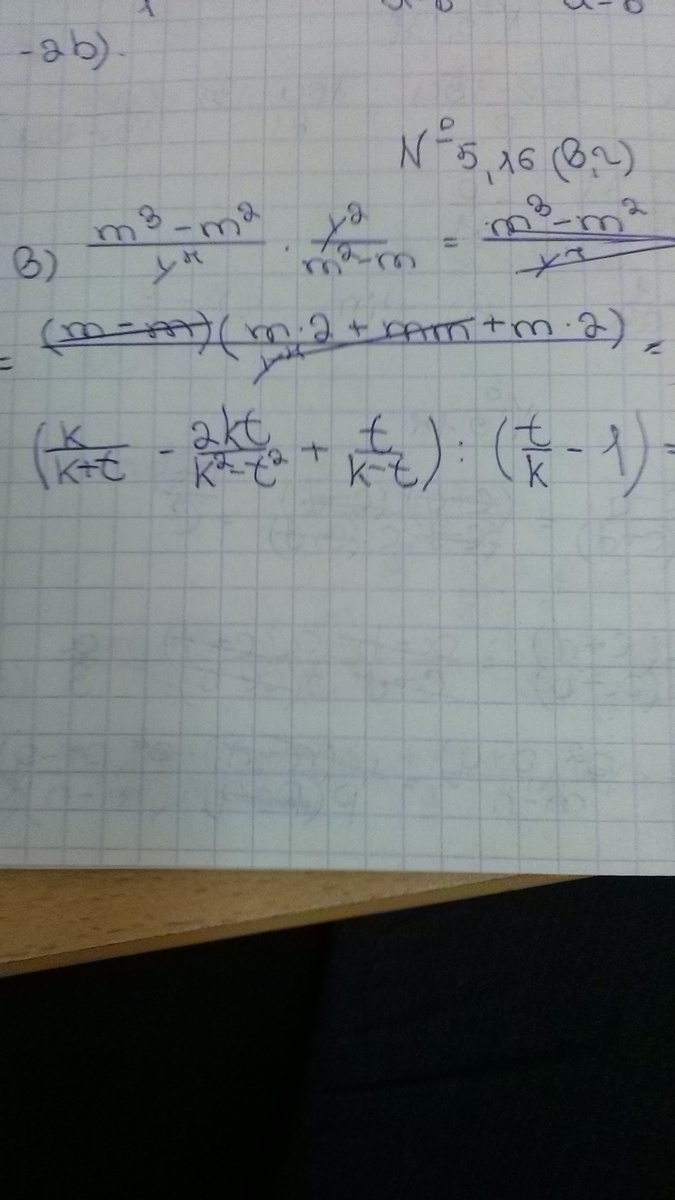 -2b).
№ 5,16 (В,2)
в) (m³ - m²)/yˣ · y²/(m² - m) = (m³ - m²)/yˣ
= (m - m)(m·2 + mm + m·2)/yˣ =
(k/(k+t) - 2kt/(k² - t²) + t/(k-t)) : (t/k - 1) =